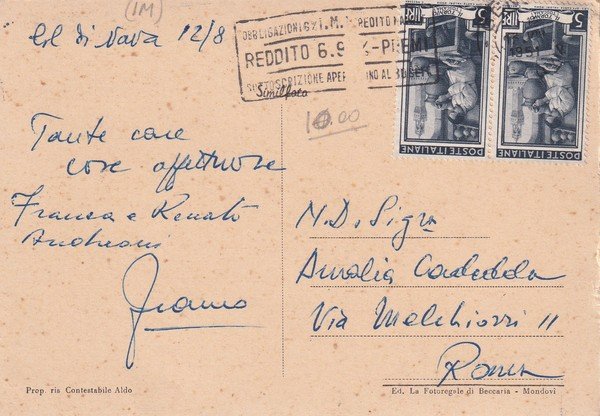 (IM)
Col di Nava 12/8
OBBLIGAZIONI 6% I.M.I. CREDITO NAVALE
REDDITO 6.94%-PREMI
SOTTOSCRIZIONE APERTA FINO AL 10 SET
Similfoto
10.00
5
LIRE
POSTE ITALIANE
5
LIRE
POSTE ITALIANE
1951
Tante care
cose affettuose
Franca e Renato
Andreoni
Franca
N.D. Sig.ra
Amalia
Via Melchiorri 11
Roma
Prop. ris Contestabile Aldo
Ed. La Fotoregale di Beccaria - Mondovì